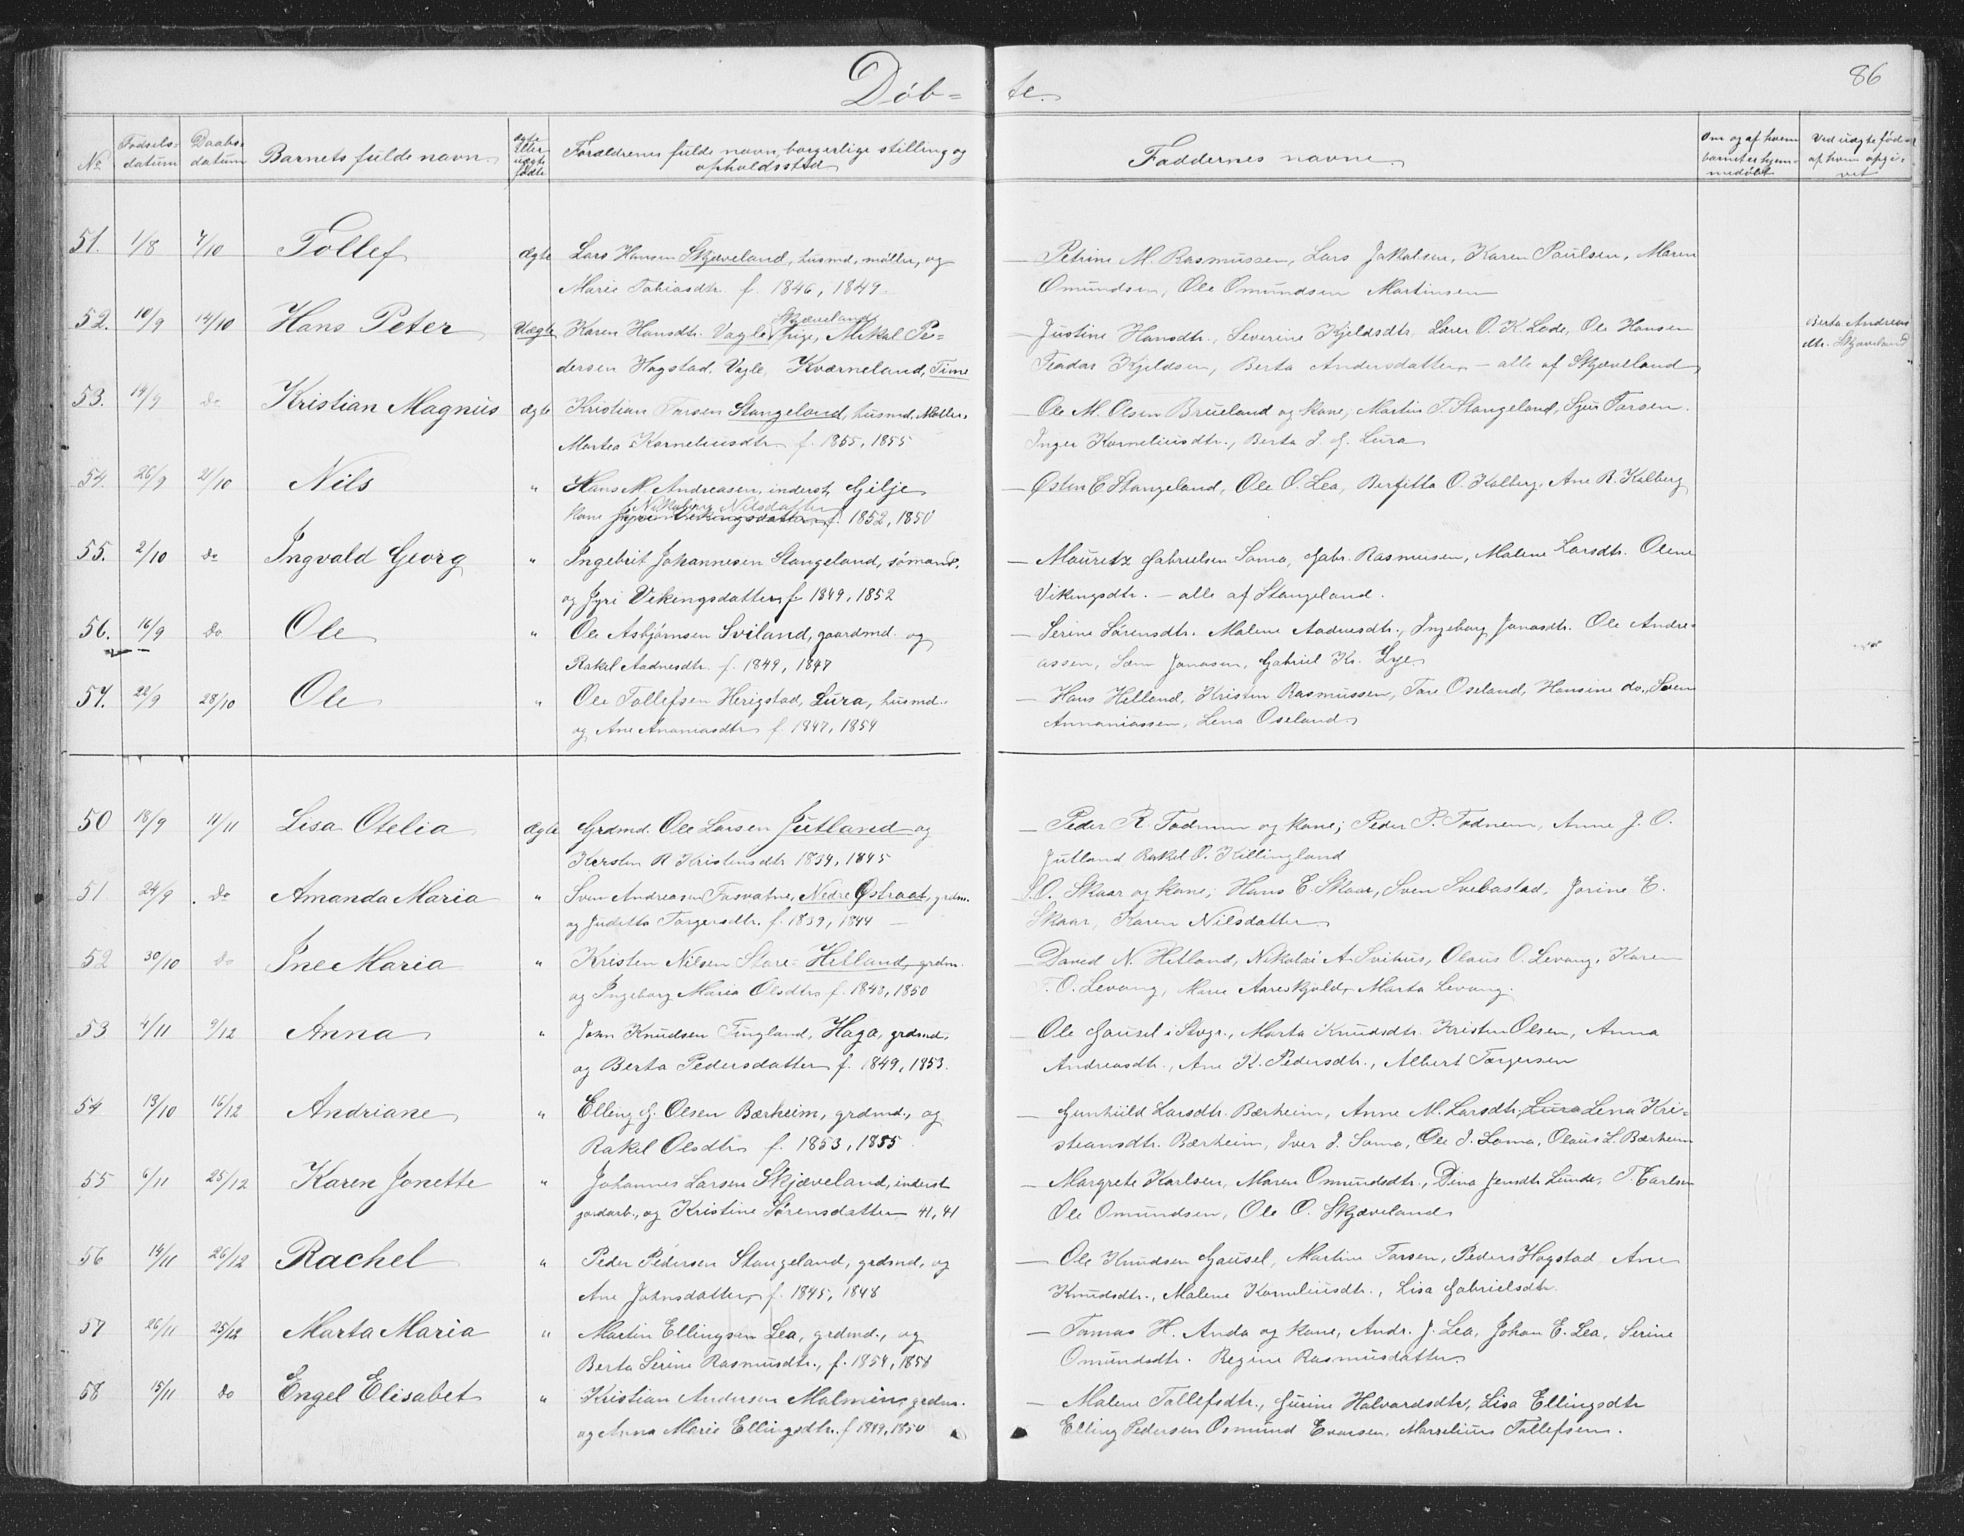 Döb-te.
86
No
Fødselsdatum
Daabsdatum
Barnets fulde navn
ægte eller uægte fødte
Forældrenes fulde navn, borgerlige stilling og opholdssted
Faddernes navne
Om og af hvem barnet er hjemmedøbt
Ved uægte fødte af hvem opgivet
51. 1/8 7/10 Tollef ægte Lars Hansen Skjæveland, husmd, møller, og
Marie Tobiasdtr. f. 1846, 1849.
— Petrine M. Rasmussen, Lars Jakobsen, Karen Paulsen, Maren
Omundsen, Ole Omundsen Martinsen
52. 10/9 14/10 Hans Peter Uægte Karen Hansdtr. Vagle Skjæveland pige, Mikal Pe-
dersen Hogstad, Vagle, Kværneland, Time
— Justine Hansdtr., Severine Kjeldsdtr, Lærer O. K. Lode, Ole Hansen
Teodor Kjeldsen, Berta Andersdatter — alle af Skjæveland
Berta Andreas
dtr. Skjæveland
53. 14/9 do Kristian Magnus ægte Kristian Tarsen Stangeland, husmd, Møller,
Martea Korneliusdtr f. 1855, 1855
— Ole M. Olsen Brueland og kone, Martin T. Stangeland, Sjur Tarsen.
Inger Korneliusdtr., Berta J. G. Lura
54. 26/9 21/10 Nils " Hans M. Andreasen, inderst, Gilje
kone Nilsdatter f. 1852, 1850
— Østen E Stangeland, Ole O. Lea, Bergitta O. Kalberg, Ane R. Kalberg
55. 2/10 do Ingvald Georg " Ingebret Johannesen Stangeland, sømand,
og Gyri Vekingsdatter f 1849, 1852
— Mauretz Gabrielsen Soma, Gabr. Rasmusen, Malene Larsdtr. Olene
Vikingsdtr. — alle af Stangeland.
56. 16/9 do Ole " Ole Asbjørnsen Sviland, gaardmd. og
Rakel Aadnesdtr. f. 1849, 1847
— Serine Sørensdtr. Malene Aadnesdtr., Ingeborg Jonasdtr. Ole Andre-
assen, Søren Jonasen, Gabriel Kr. Lye
57. 22/9 28/10 Ole " Ole Tollefsen Herigstad, Lura, husmd.
og Ane Ananiasdtr f. 1847, 1854
— Hans Helland, Kristen Rasmussen, Tore Oseland, Hansine do., Sven
Annaniassen, Lena Oseland
50 18/9 11/11 Lisa Otelia ægte Grdmd. Ole Larsen Jutland og
Kersten R Kristensdtr 1834, 1845
— Peder R. Fadnum og kone; Peder P. Fadnem, Anne J. O.
Jutland Rakel O. Killingland
51 24/9 do Amanda Maria " Sven Andreasen Fosvatne, Nedre Østraat, grdm.
og Juditta Torgersdtr. f. 1839, 1844 —
O. Skaar og kone; Hans E. Skaar, Sven Svebastad, Jorine E.
Skaar, Karen Nilsdatter
52 30/10 do Ine Maria " Kristen Nilsen Store-Hetland, grdm.
og Ingeborg Maria Olsdtr f. 1848, 1850
— David N. Hetland, Nikolai A Svihus, Olaus O. Levang, Karen
T. O. Levang, Marie Aareskjold, Marta Levang.
53 4/11 9/12 Anna " John Knudsen Tingland, Haga, grdmd,
og Berta Pedersdatter f. 1849, 1853.
Ole Gausel i Stvgr., Marta Knudsdtr. Kristen Olsen, Anna
Andreasdtr., Ane K. Pedersdtr., Albert Torgersen
54 13/10 16/12 Andriane " Elling G. Olsen Bærheim, grdmd., og
Rakel Olsdtr f. 1853, 1855
— Gunhild Larsdtr. Bærheim, Anne M. Larsdtr, Lura Lena Kri-
steansdtr. Bærheim, Iver J. Soma, Ole J. Soma, Olaus L. Bærheim
55 6/11 25/12 Karen Jonette " Johannes Larsen Skjæveland, inderst
jordarb., og Kristine Sørensdatter 41, 41
— Margrete Karlsen, Maren Omundsdtr., Dina Jensdtr Lunde, T. Carlsen
Ole Omundsen, Ole O. Skjæveland
56 14/11 26/12 Rachel " Peder Pedersen Stangeland, grdmd, og
Ane Johnsdatter f. 1845, 1848
— Ole Knudsen Gausel, Martine Tarsen, Peder Hogstad, Ane
Knudsdtr., Malene Korneliusdtr., Lisa Gabrielsdtr.
57 26/11 25/12 Marta Maria " Martin Ellingsen Lea, grdmd., og
Berta Serine Rasmusdtr., f. 1854, 1858
— Tomas H. Anda og kone, Andr. J. Lea, Johan E. Lea, Serine
Omundsdtr. Regine Rasmusdatter
58 15/11 do Engel Elisabet " Kristian Andersen Malmin, grdm.
og Anna Marie Ellingsdtr. f 1849, 1850
— Malene Tollefsdtr., Gurine Halvardsdtr, Lisa Ellingsdtr
Elling Pedersen Osmund Evarsen, Marselius Tollefsen.